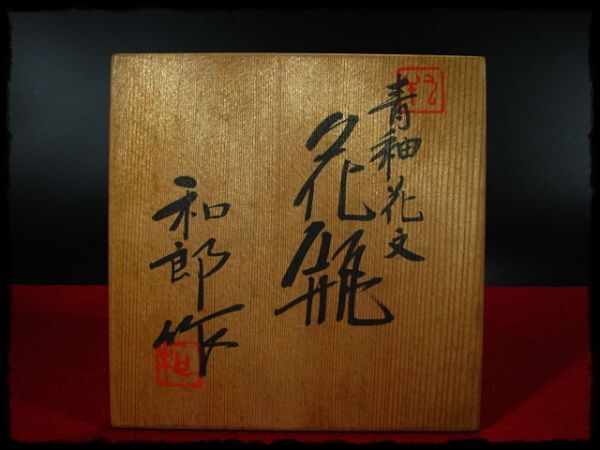 青釉花文
花瓶
和郎作